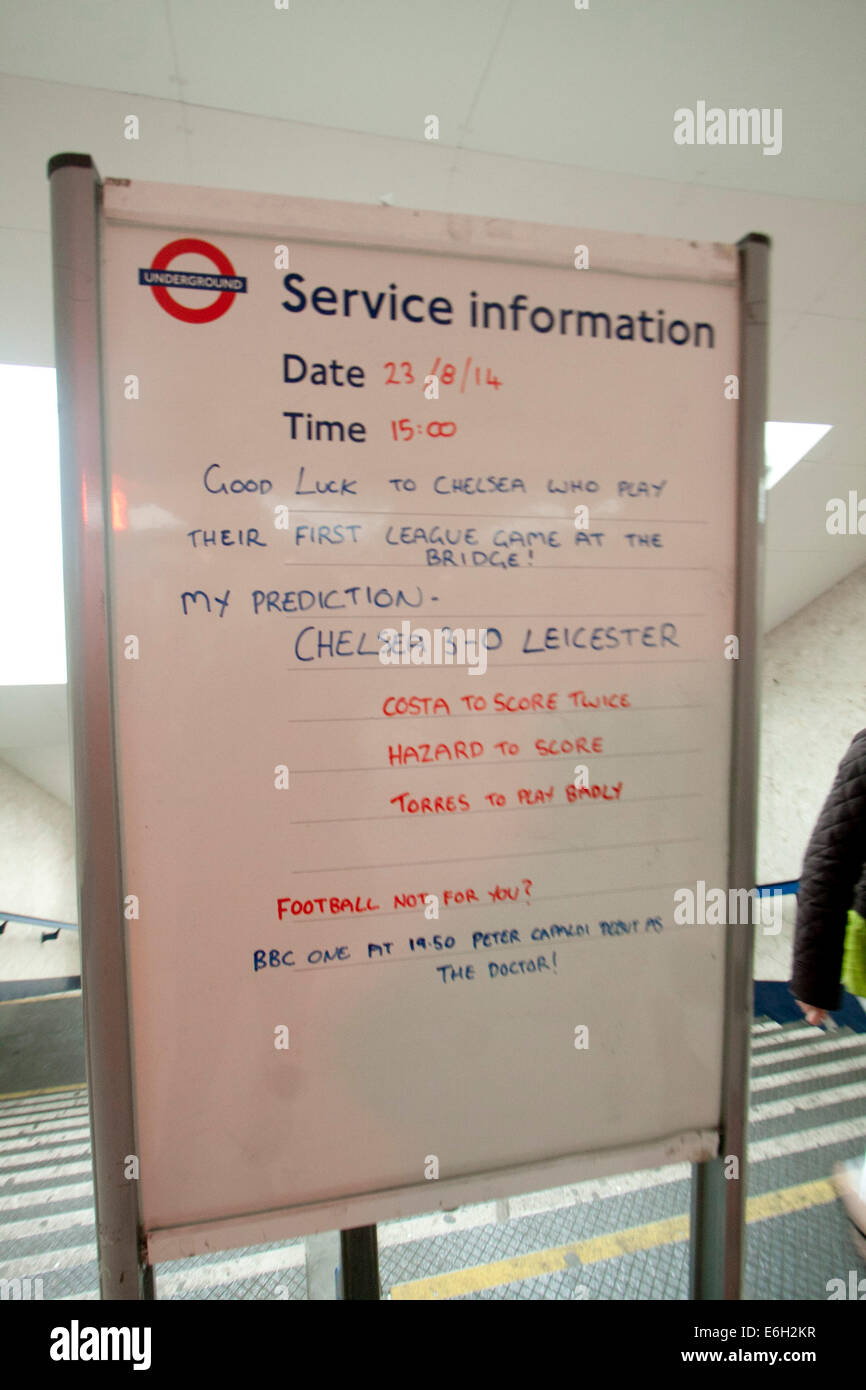 UNDERGROUND
Service information
Date 23/8/14
Time 15:00
GOOD LUCK TO CHELSEA WHO PLAY
THEIR FIRST LEAGUE GAME AT THE
BRIDGE!
MY PREDICTION -
CHELSEA 3-0 LEICESTER
COSTA TO SCORE TWICE
HAZARD TO SCORE
TORRES TO PLAY BADLY
FOOTBALL NOT FOR YOU?
BBC ONE AT 19.50 PETER CAPALDI DEBUT AS
THE DOCTOR!
alamy
alamy stock photo
E6H2KR
www.alamy.com